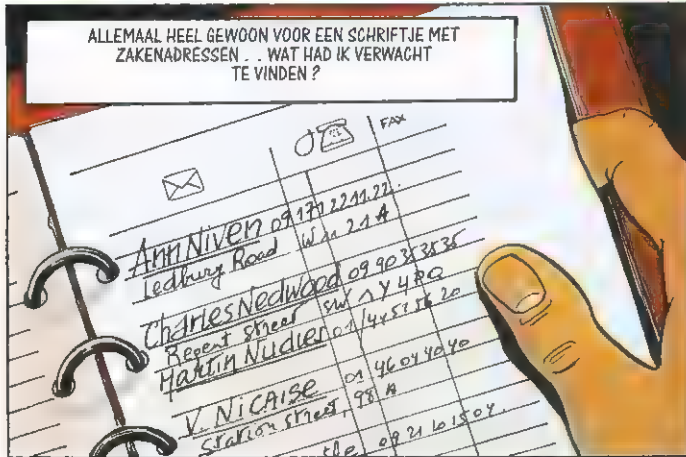 ALLEMAAL HEEL GEWOON VOOR EEN SCHRIFTJE MET
ZAKENADRESSEN . . WAT HAD IK VERWACHT
TE VINDEN ?
FAX
Ann Niven 09 171 22 11 22
Ledbury Road W11 21 A
Charles Nedwood 09 90 35 35 35
Regent Street SW 1 Y 4 PQ
Martin Nudier 01 44 57 56 20
V. Nicaise 01 46 04 40 40
Station street, 98 A
09 21 10 15 04